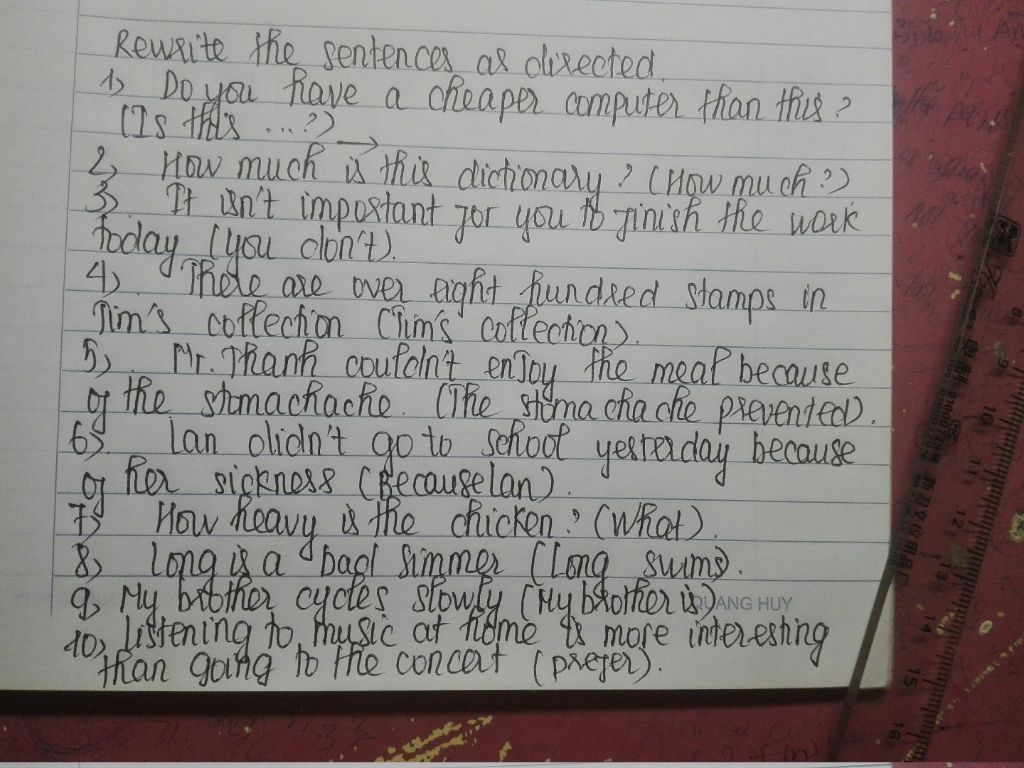 Rewrite the sentences as directed.
1) Do you have a cheaper computer than this?
(Is this ...?) →
2) How much is this dictionary? (How much?)
3) It isn't important for you to finish the work
today (you don't).
4) There are over eight hundred stamps in
Tim's collection (Tim's collection).
5) Mr. Thanh couldn't enjoy the meal because
of the stomachache. (The stomachache prevented).
6) Lan didn't go to school yesterday because
of her sickness (Because Lan).
7) How heavy is the chicken? (What).
8) Long is a bad simmer (Long swims).
9) My brother cycles slowly (My brother is)
QUANG HUY
10) Listening to music at home is more interesting
than going to the concert (prefer).
9
10
11
12
13
14
15
16